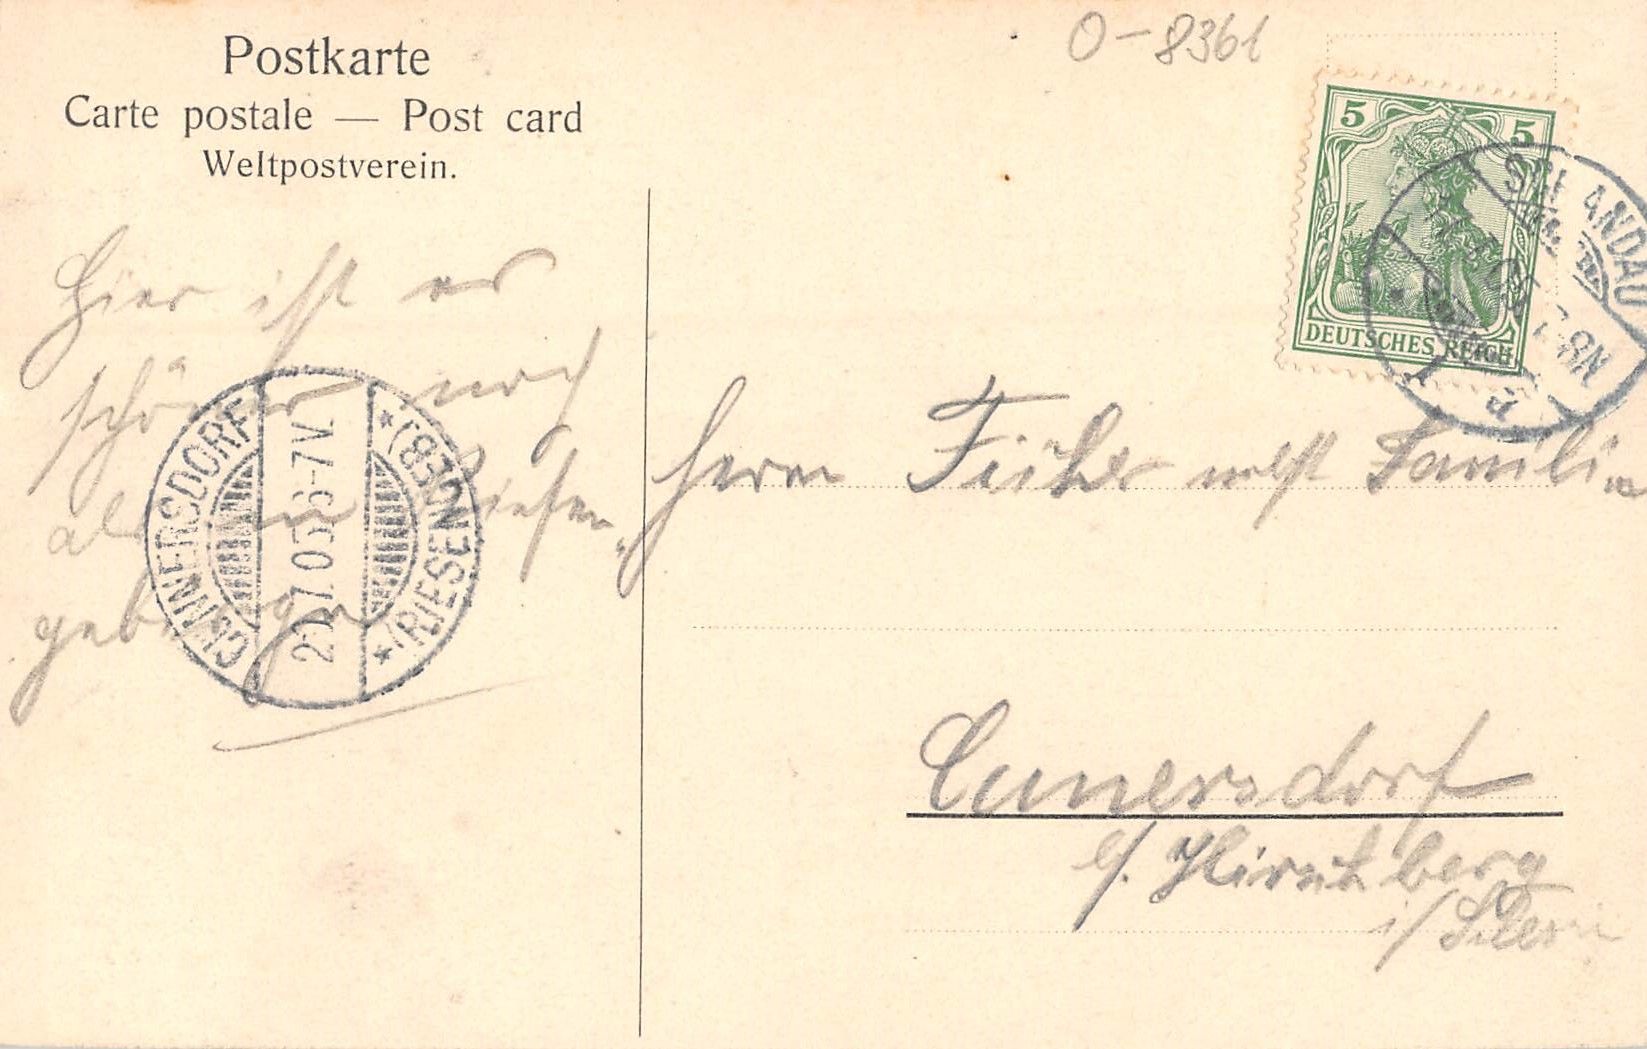 Postkarte
Carte postale — Post card
Weltpostverein.
O-8361
5 5
DEUTSCHES REICH
SCHANDAU
7-8N
Hier ist es
schöner noch
als im Riesen-
gebirge
CUNNERSDORF
(RIESENGEB.)
21.7.05 6-7V.
Herrn nebst Familie
Cunersdorf
b/. Hirschberg
i/Schlesien